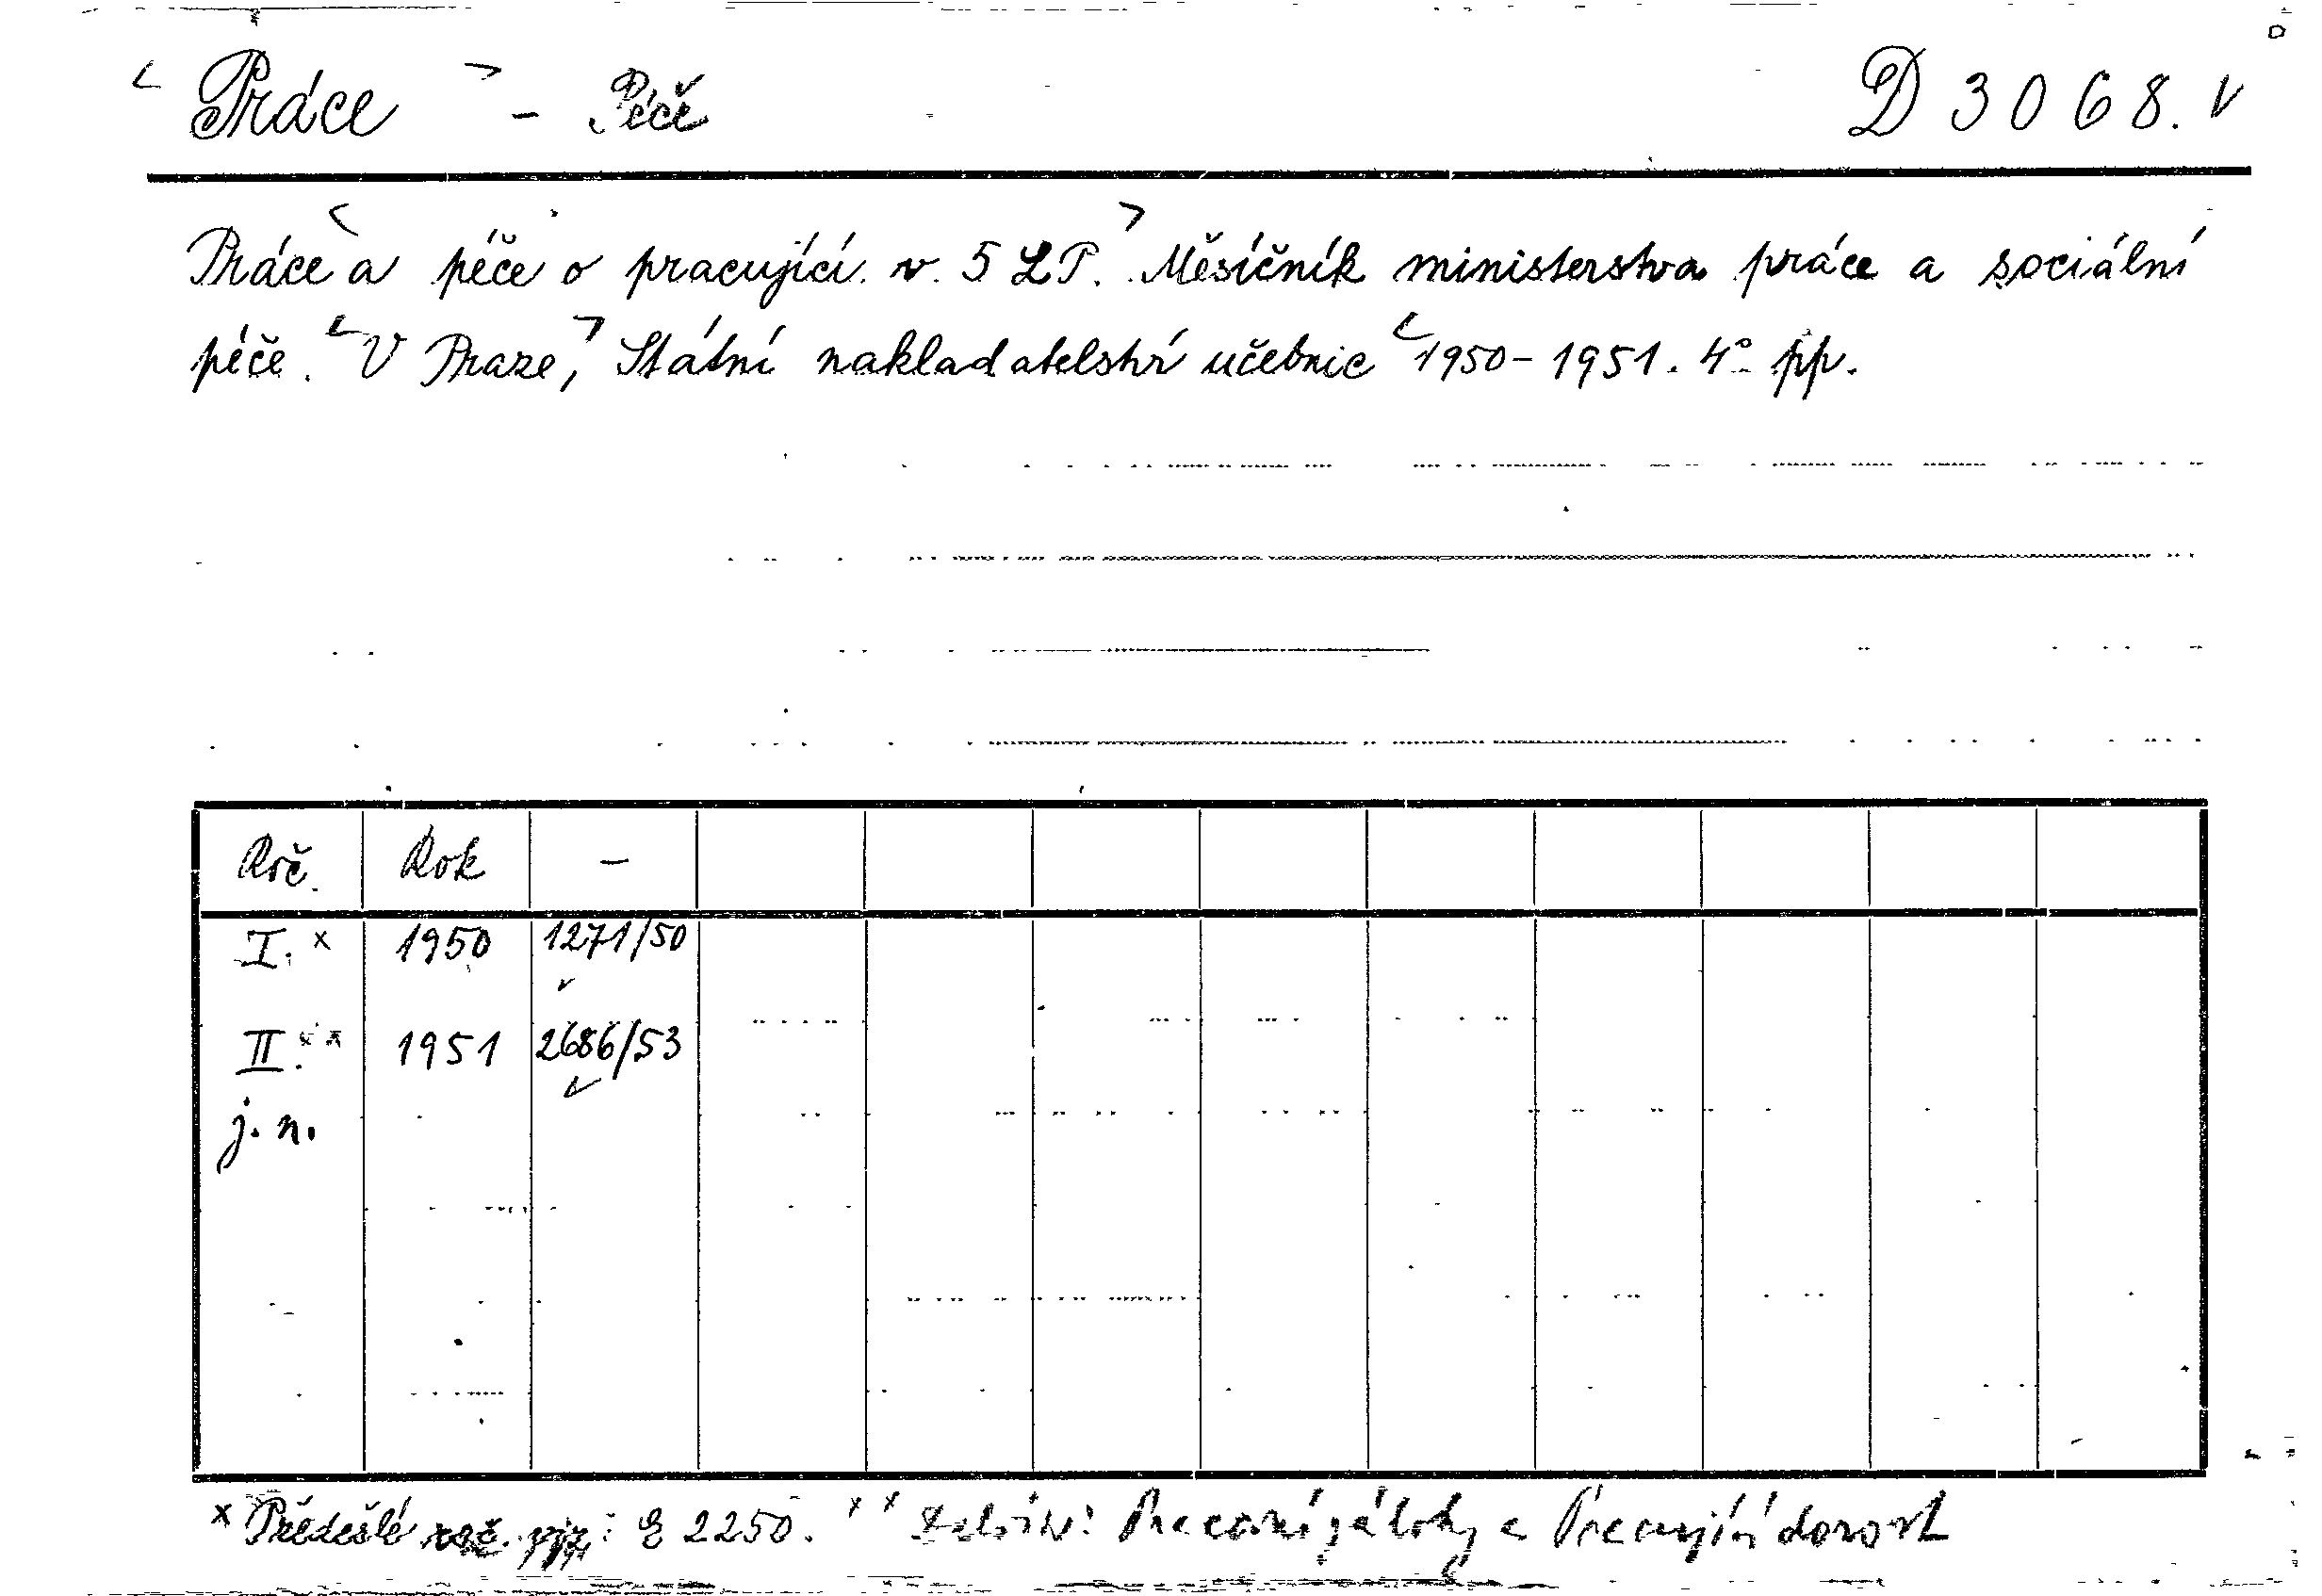 < Práce > - Péče D 3068. v
Práce < a péče o pracující v 5 LP. > Měsíčník ministerstva práce a sociální
péče. < V Praze, > Státní nakladatelství učebnic < 1950-1951. 4° pp.
Roč. Rok -
I. x 1950 1271/50
II. xx 1951 2686/53
j. n.
x Předešlé roč. viz: E 2250. xx Pracovní zálohy a Pracující dorost